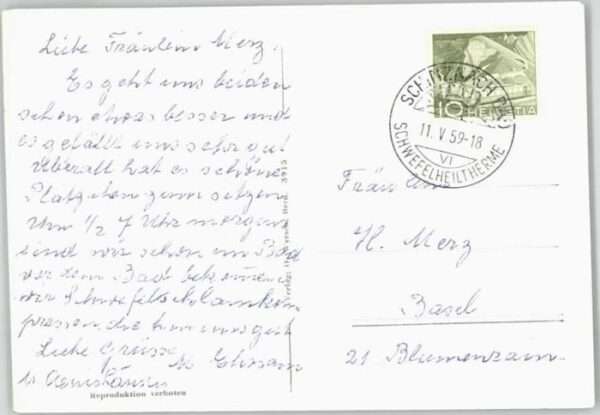 Liebe Fräulein Merz,
Es geht uns beiden
schon etwas besser und
es gefällt uns sehr gut
Überall hat es schöne
Plätzchen zum sitzen
Um ½ 7 Uhr morgen
sind wir schon im Bad
vor dem Bad bekommen
wir Schwefelschlammkom
pressen, die tun uns gut
Liebe Grüsse
Reproduktion verboten
3915
SCHINZNACH BAD
11. V 59-18
VI
SCHWEFELHEILTHERME
10 HELVETIA
Fräulein
H. Merz
Basel
21 Blumenrain